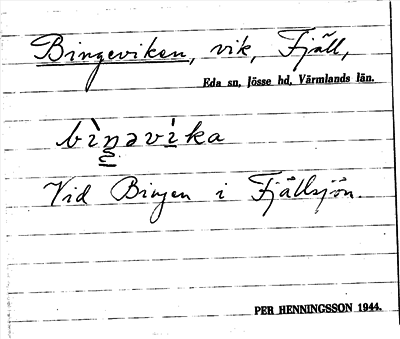 Bingeviken, vik, Fjäll,
Eda sn, Jösse hd, Värmlands län.
bìŋəvìka
Vid Bingen i Fjällsjön.
PER HENNINGSSON 1944.